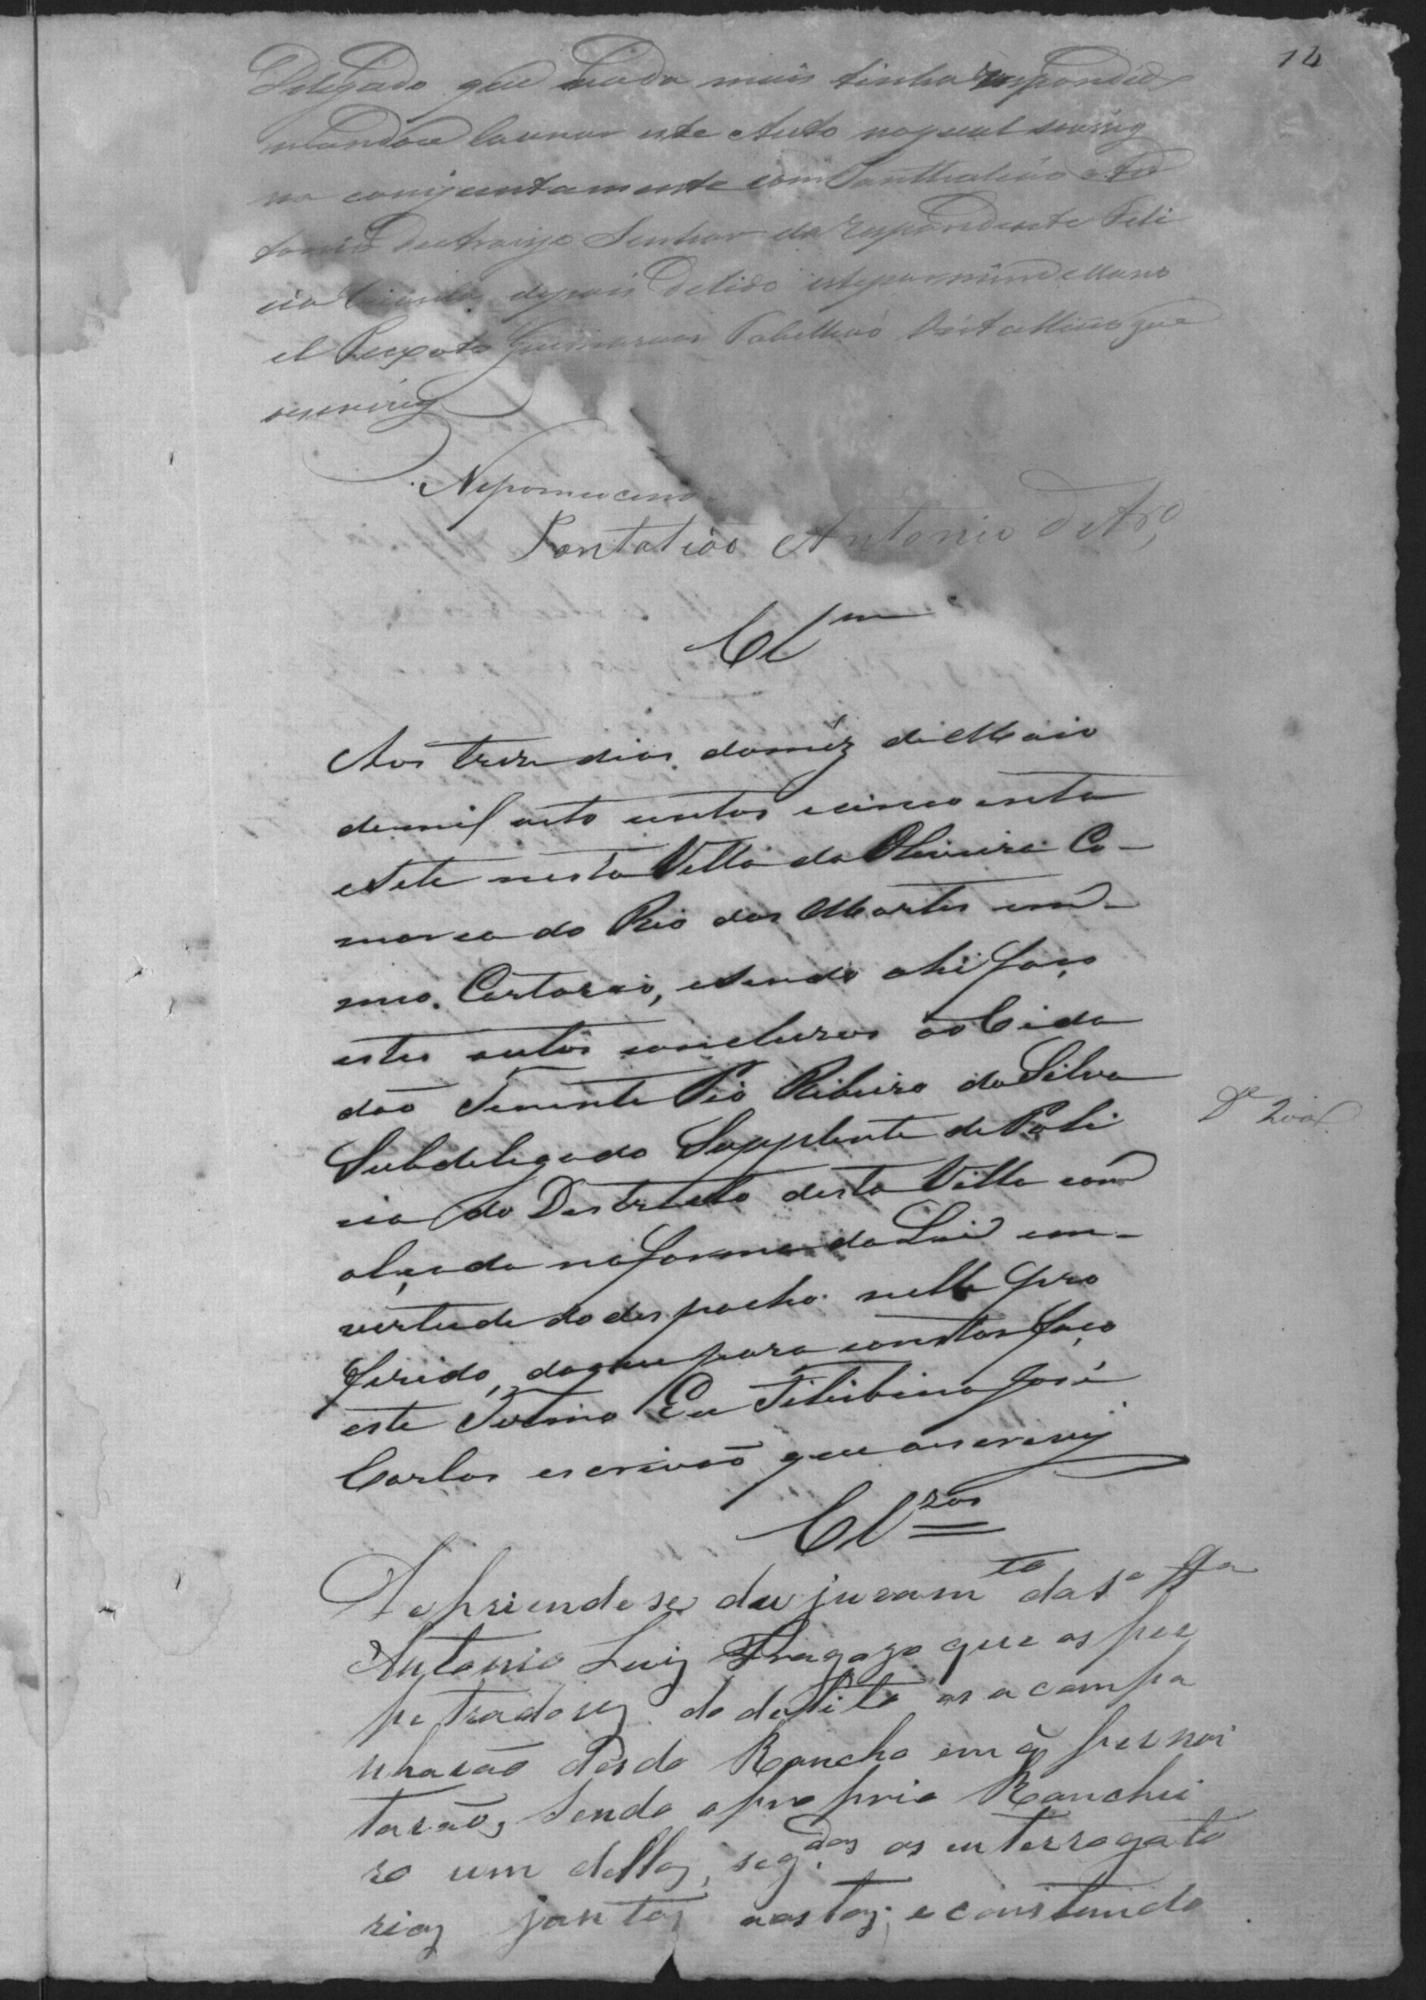 14
Delegado que nada mais tinha respondido
mandou lavrar este Auto no qual se assig
na conjuntamente com Pantalião An
tonio de Araujo Senhor da respondente Feli
cia Crioula, depois de lido este por mim Mano
el Peixoto Guimaraes Tabellião que
escrevi
Nepomuceno
Pantalião Antonio de Arº
Clm
Aos treze dias do mêz de Maio
de mil oito centos e cincoenta
e sete nesta Villa da Oliveira Co-
marca do Rio das Mortes em-
meu Cartorio, e sendo ahi faço
estes autos concluzos ao Cida
dão Tenente Pio Ribeiro da Silva
Subdelegado Supplente de Poli
cia do Destricto desta Villa com
alçada na forma da Lei em-
vertude do despacho nelle pro
ferido, do que para constar faço
este Termo Eu Filisbino José
Carlos escrivão que o escrevy
Clzos
Dº 200
Depriende se du juramto da tª
Antonio Luiz Fragozo que os per
petradores do delito os acompa
nharão desde Rancho em q̃ pernoi
tarão, sendo o proprio Ranchei
ro um delles, segdos os enterrogato
rios juntos aostos; e constando